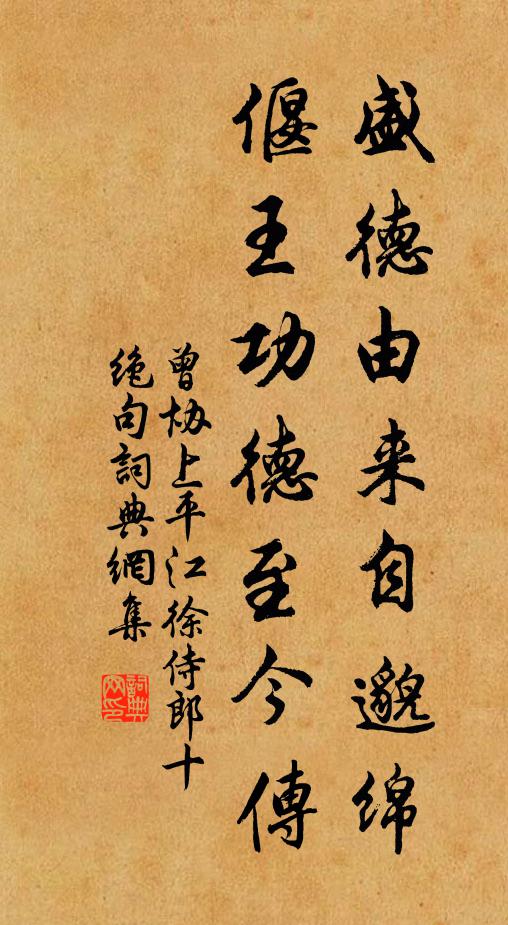 盛德由来自邈绵
偃王功德至今傳
曾协上平江徐侍郎十
绝句詞典網集
詞典
网印